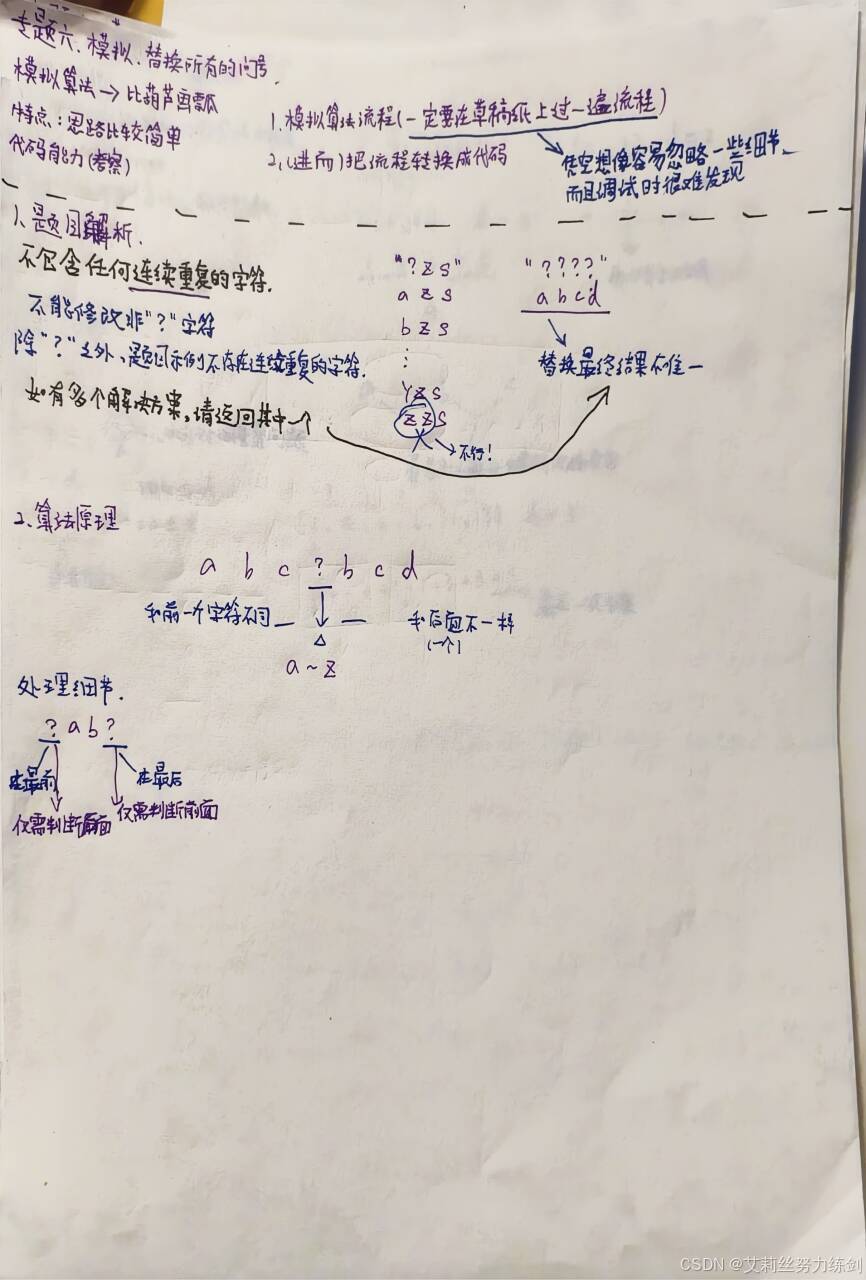 专题六、模拟、替换所有的问号
模拟算法→比葫芦画瓢
特点:思路比较简单
代码能力(考察)
1.模拟算法流程(一定要在草稿纸上过一遍流程)
2.(进而)把流程转换成代码
凭空想像容易忽略一些细节、
而且调试时很难发现
1、题目解析.
不包含任何连续重复的字符.
不能修改非"?"字符
除"?"之外,题目示例不存在连续重复的字符.
如有多个解决方案,请返回其中一个.
"?zs"
azs
bzs
⋮
yzs
zzs
不行!
"????"
abcd
替换最终结果不唯一
2、算法原理
a b c ? b c d
和前一个字符不同
和后面不一样
(一个)
a~z
处理细节.
?ab?
在最前
在最后
仅需判断后面
仅需判断前面
CSDN @艾莉丝努力练剑